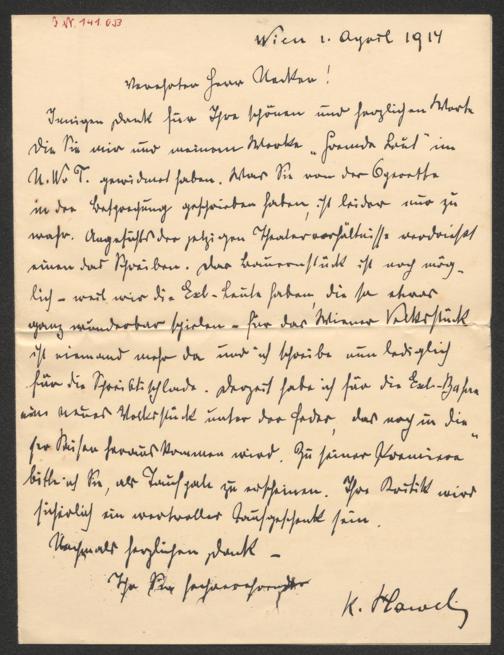 J.N. 141.033
Wien 1. April 1914
Verehrter Herr Necker!
Innigen Dank für Ihre schönen und herzlichen Worte
die Sie mir und meinem Werke „Fremde Leut" im
N.W.T. gewidmet haben. Was Sie von der Operette
in der Besprechung geschrieben haben, ist leider nur zu
wahr. Angesichts der jetzigen Theaterverhältnisse verdrießt
einen das Schreiben. Das Bauernstück ist noch mög-
lich – weil wir die Exl-Leute haben, die so etwas
ganz wunderbar spielen – für das Wiener Volksstück
ist niemand mehr da und ich schreibe nun lediglich
für die Schreibtischlade. Derzeit habe ich für die Exl-Bühne
ein neues Volksstück unter der Feder, das noch in die-
ser Saison herauskommen wird. Zu seiner Premiere
bitte ich Sie, als Taufpate zu erscheinen. Ihre Kritik wird
sicherlich ein wertvolles Taufgeschenk sein.
Nochmals herzlichen Dank –
Ihr Sie hochverehrender
K. Hawel